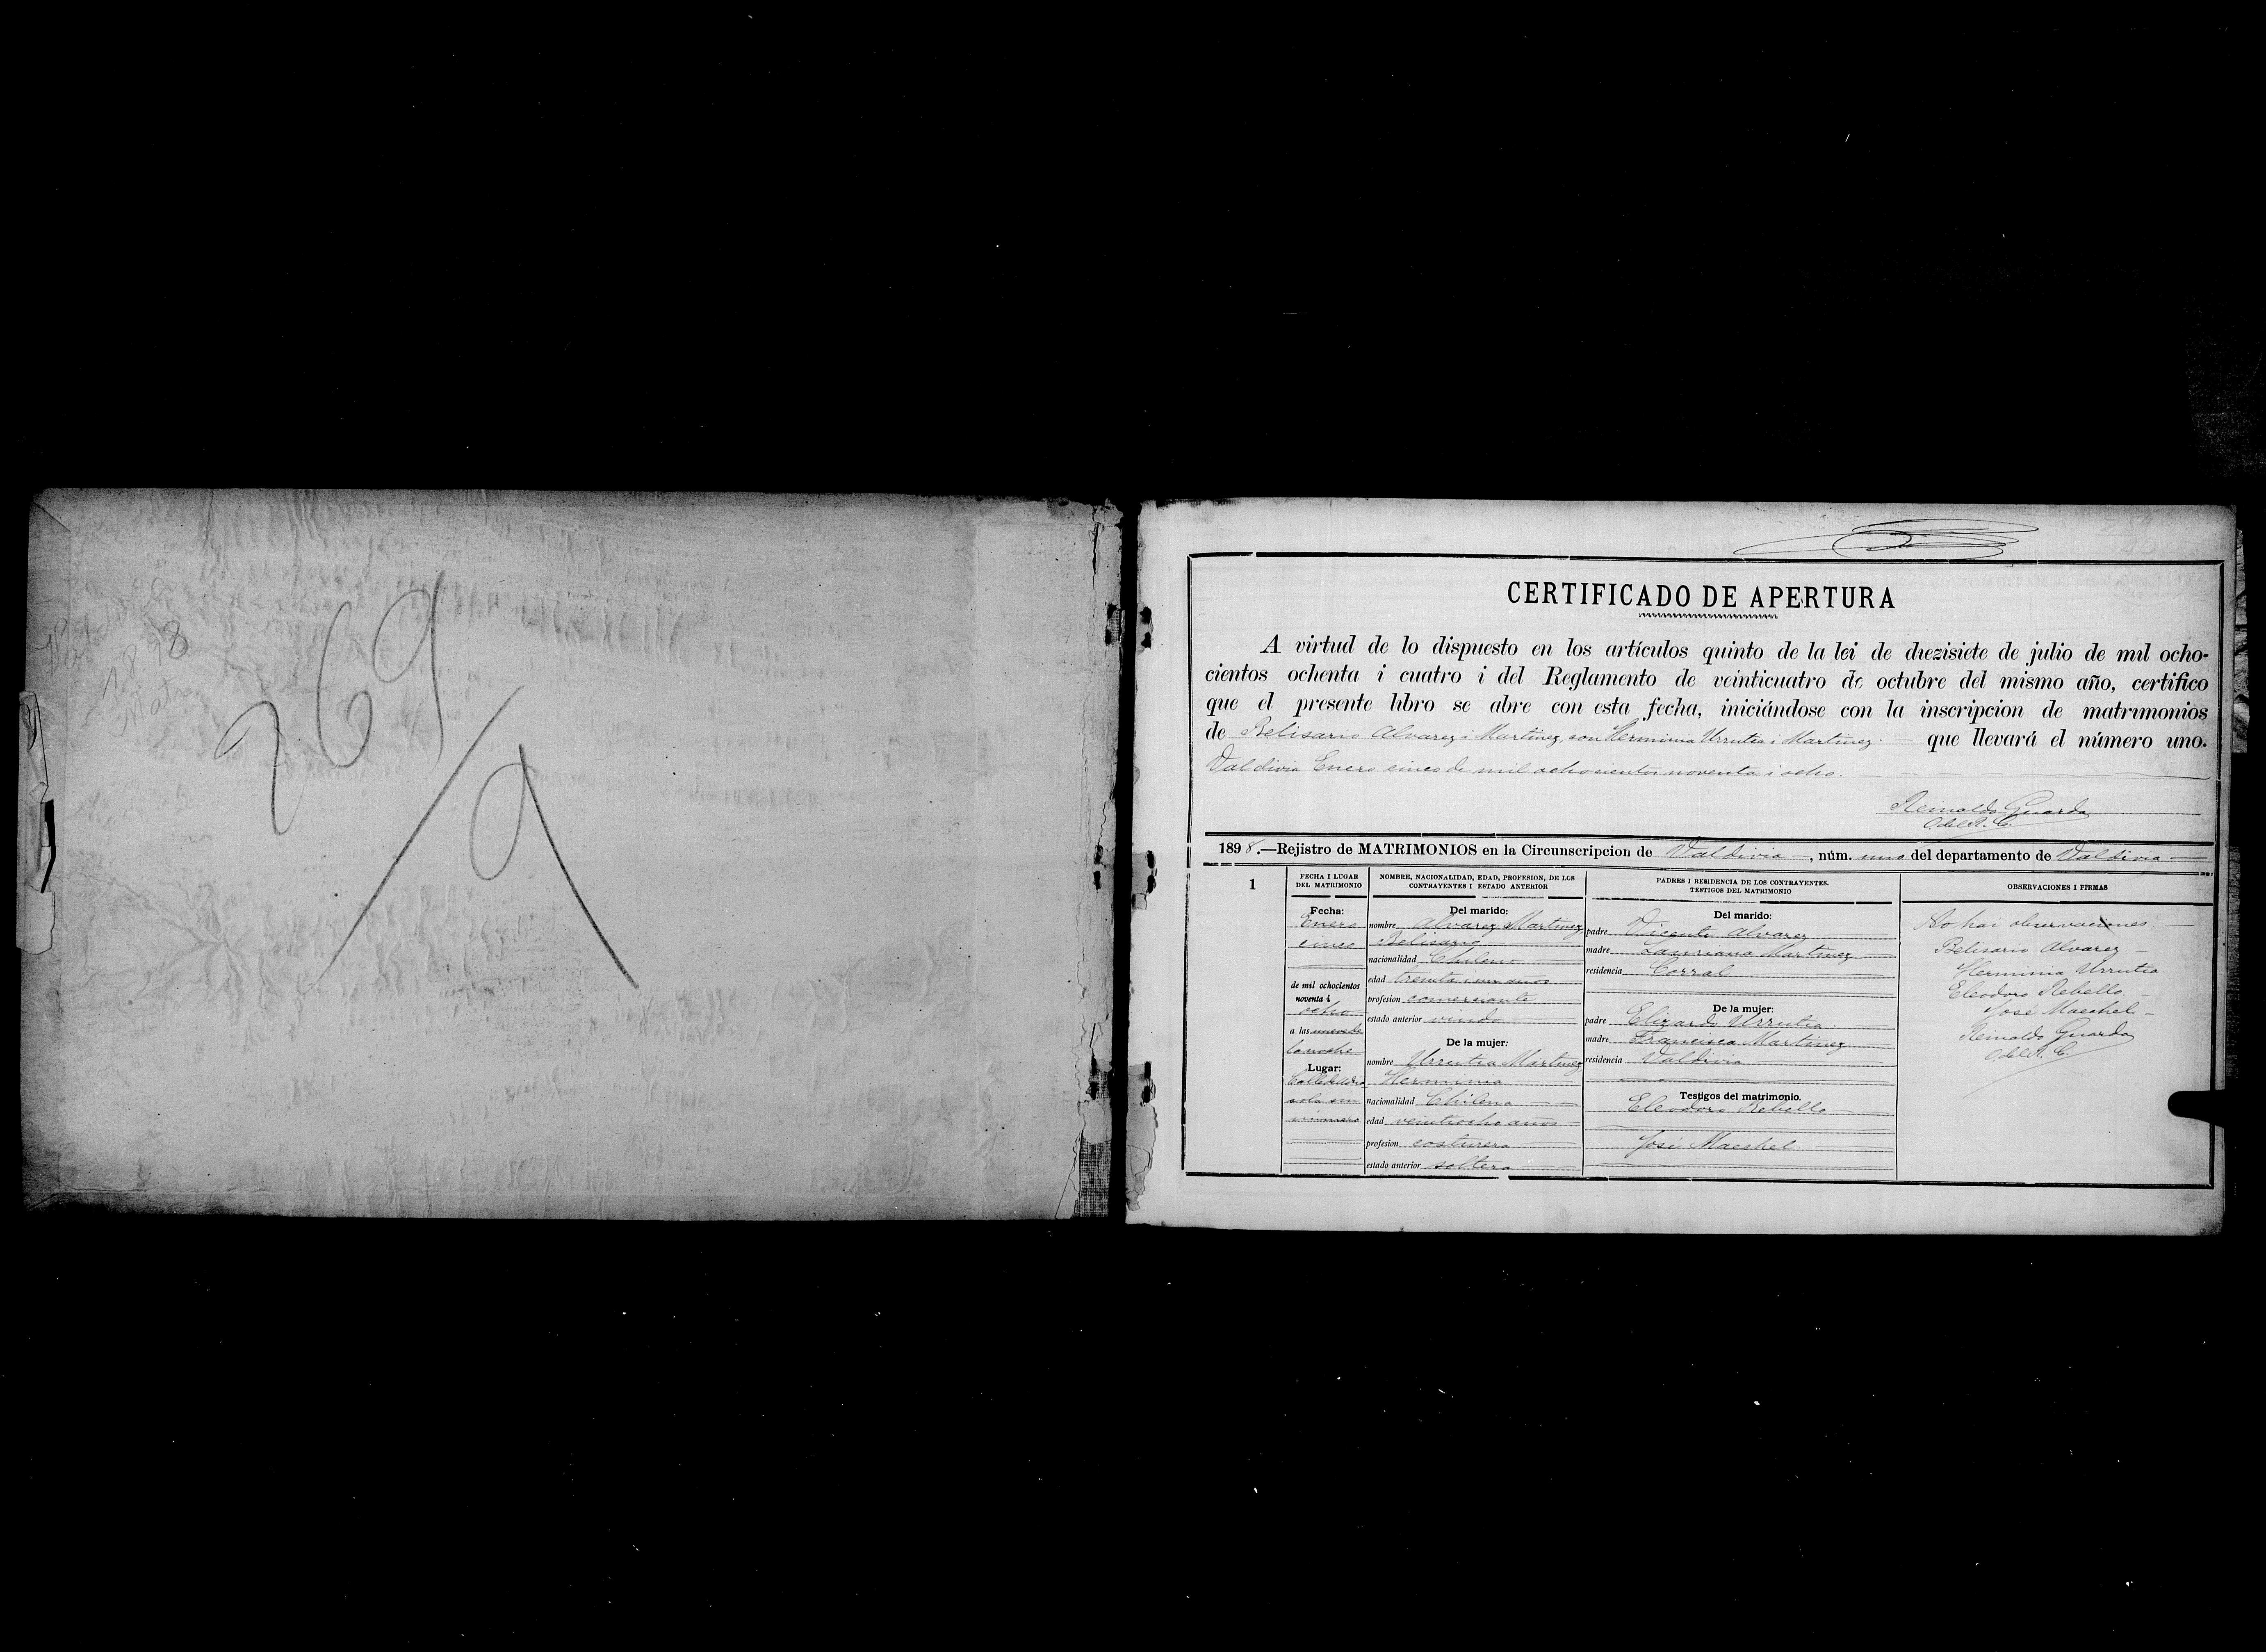 1898
Matr
269
9
CERTIFICADO DE APERTURA
A virtud de lo dispuesto en los artículos quinto de la lei de diezisiete de julio de mil ocho-
cientos ochenta i cuatro i del Reglamento de veinticuatro de octubre del mismo año, certifico
que el presente libro se abre con esta fecha, iniciándose con la inscripcion de matrimonios
de Belisario Alvarez i Martinez, con Herminia Urrutia i Martinez que llevará el número uno.
Valdivia Enero cinco de mil ochocientos noventa i ocho.
Reinaldo Guarda
O. del R. C.
1898.—Rejistro de MATRIMONIOS en la Circunscripcion de Valdivia, núm. uno del departamento de Valdivia
1
FECHA I LUGAR
DEL MATRIMONIO
Fecha:
Enero
cinco
de mil ochocientos
noventa i
ocho
a las nueve de
la noche
Lugar:
sin
número
NOMBRE, NACIONALIDAD, EDAD, PROFESION, DE LOS
CONTRAYENTES I ESTADO ANTERIOR
Del marido:
nombre Alvarez Martinez
Belisario
nacionalidad Chileno
edad treinta i un años
profesion comerciante
estado anterior viudo
De la mujer:
nombre Urrutia Martinez
Herminia
nacionalidad Chilena
edad veintiocho años
profesion costurera
estado anterior soltera
PADRES I RESIDENCIA DE LOS CONTRAYENTES.
TESTIGOS DEL MATRIMONIO
Del marido:
padre Vicente Alvarez
madre Lauriana Martinez
residencia Corral
De la mujer:
padre Elizardo Urrutia
madre Francisca Martinez
residencia Valdivia
Testigos del matrimonio.
Eleodoro Rebello
José Maechel
OBSERVACIONES I FIRMAS
No hai observaciones
Belisario Alvarez
Herminia Urrutia
Eleodoro Rebello
José Maechel
Reinaldo Guarda
O. del R. C.